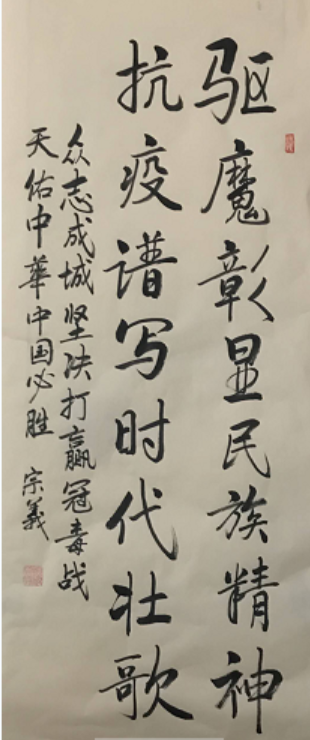 驱魔彰显民族精神
抗疫谱写时代壮歌
众志成城坚决打赢冠毒战
天佑中华中国必胜 宗義